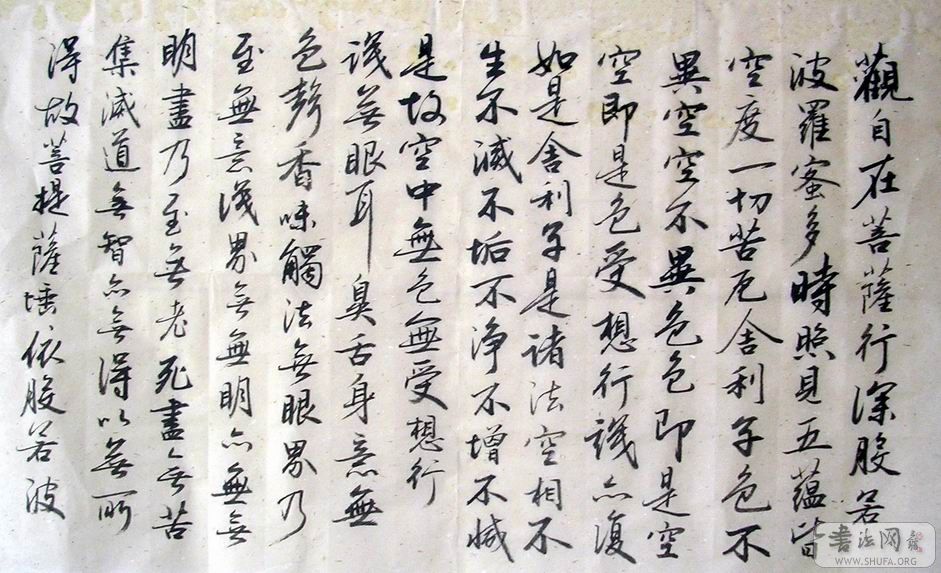 觀自在菩薩行深般若
波羅蜜多時照見五蘊皆
空度一切苦厄舍利子色不
異空空不異色色即是空
空即是色受想行識亦復
如是舍利子是諸法空相不
生不滅不垢不淨不增不減
是故空中無色無受想行
識無眼耳鼻舌身意無
色聲香味觸法無眼界乃
至無意識界無無明亦無無
明盡乃至無老死盡無苦
集滅道無智亦無得以無所
得故菩提薩埵依般若波
书法网
WWW.SHUFA.ORG